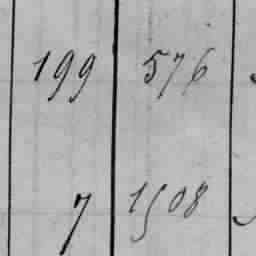 199 576
7 1508